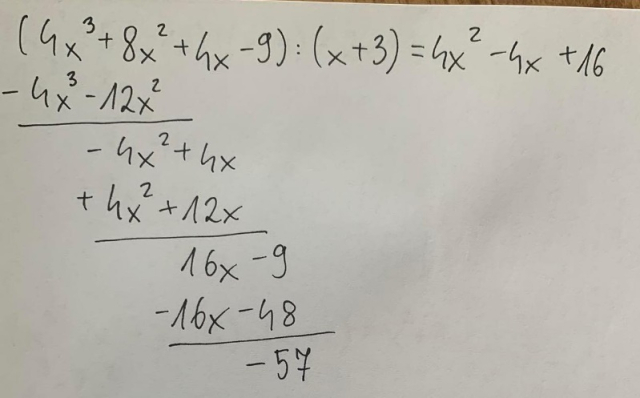 (4x³+8x²+4x-9):(x+3)=4x²-4x+16
-4x³-12x²
-4x²+4x
+4x²+12x
16x-9
-16x-48
-57